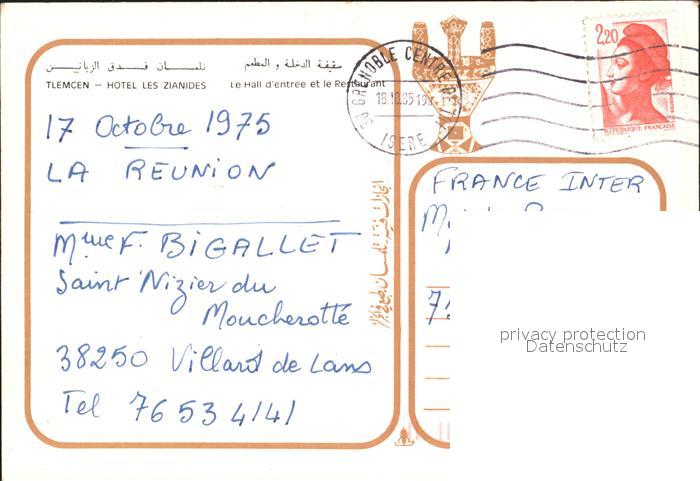 تلمسان فندق الزيانيين
سقيفة الدخلة و المطعم
TLEMCEN – HOTEL LES ZIANIDES
Le Hall d'entrée et le Restaurant
GRENOBLE CENTRE
18.10.85
ISERE
2,20
REPUBLIQUE FRANÇAISE
17 Octobre 1975
LA REUNION
Mme F. BIGALLET
Saint Nizier du
Moucherotte
38250 Villard de Lans
Tel 76 53 4141
FRANCE INTER
privacy protection
Datenschutz